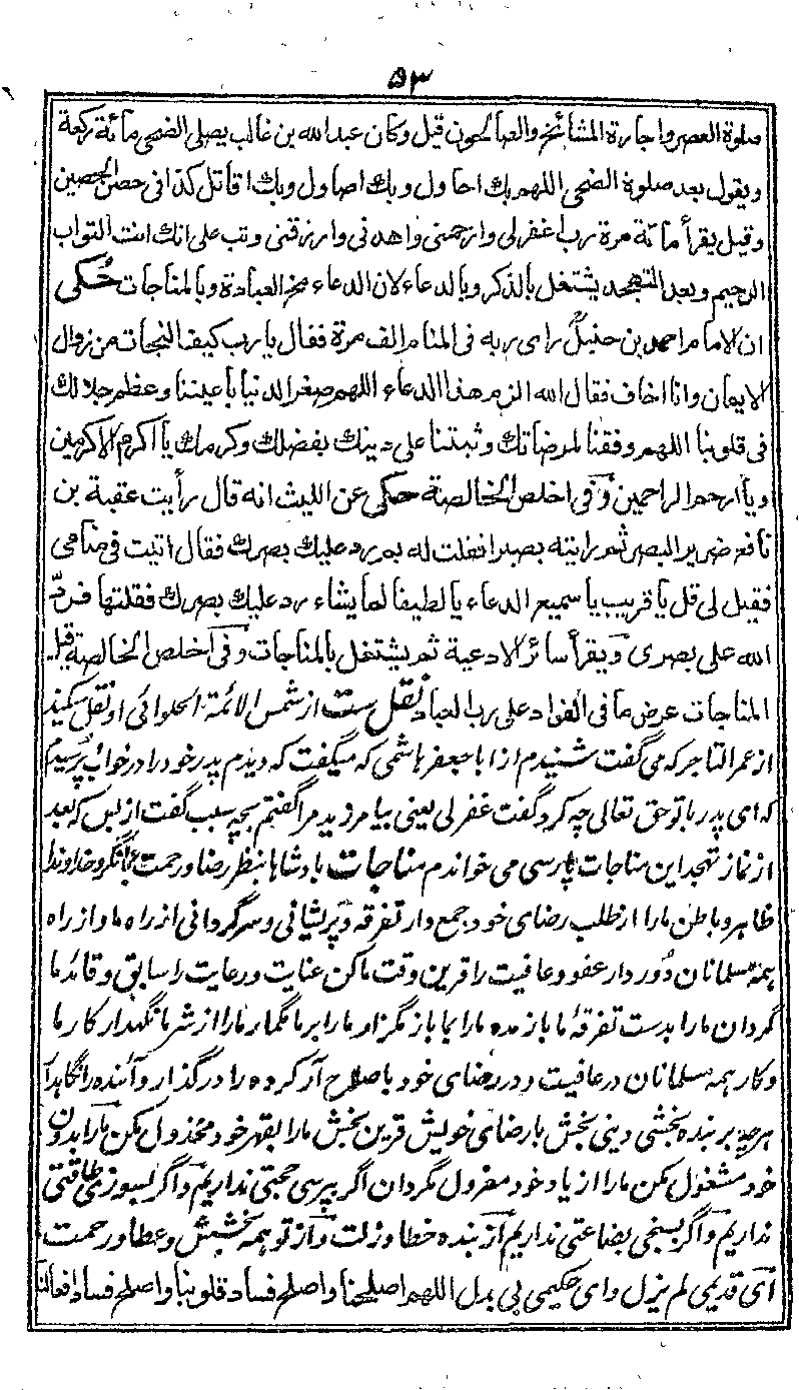 ۵۳
صلوة العصر واجازة المشائخ والصالحون قيل وكان عبد الله بن غالب يصلى الضحى مائة ركعة
ويقول بعد صلوة الضحى اللهم بك احاول وبك اصاول وبك اقاتل كذا فى حصن الحصين
وقيل يقرأ مائة مرة رب اغفرلى وارحمنى واهدنى وارزقنى وتب على انك انت التواب
الرحيم وبعد التهجد يشتغل بالذكر وبالدعاء لان الدعاء مخ العبادة وبالمناجات حُكى
ان الامام احمد بن حنبل راى ربه فى المنام الف مرة فقال يارب كيف النجات من زوال
الايمان وانا اخاف فقال الله الزم هذا الدعاء اللهم صغر الدنيا باعيننا وعظم جلالك
فى قلوبنا اللهم وفقنا لمرضاتك وثبتنا على دينك بفضلك وكرمك يا اكرم الاكرمين
ويا ارحم الراحمين وفى اخلص الخالصة حكى عن الليث انه قال رأيت عقبة بن
نافع ضرير البصر ثم رايته بصيرا فقلت له بم رد عليك بصرك فقال اتيت فى منامى
فقيل لى قل يا قريب يا سميع الدعاء يا لطيفا لما يشاء رد عليك بصرك فقلتها فردّ
الله على بصرى ويقرأ سائر الادعية ثم يشتغل بالمناجات وفى اخلص الخالصة قيل
المناجات عرض ما فى الفواد على رب العباد نقل ست از شمس الائمة الحلوائى او نقل ميكند
از عمر التاجر که می گفت شنیدم از ابا جعفر هاشمی که میگفت که دیدم پدر خود را در خواب پرسیدم
که ای پدر با تو حق تعالی چه کرد گفت غفر لی یعنی بیامرزید مرا گفتم بچه سبب گفت از بس که بعد
از نماز تهجد این مناجات پارسی می خواندم مناجات بادشاها بنظر رضا و رحمت بما نگر خداوندا
ظاهر و باطن ما را از طلب رضای خود جمع دار تفرقه و پریشانی و سرگردانی از راه ما و از راه
همه مسلمانان دُور دار عفو و عافیت را قرین وقت ما کن عنایت و رعایت را سابق و قائد ما
گردان ما را بدست تفرقهٔ ما باز مده ما را بما باز مگزار ما را بر ما مگمار ما را از شر ما نگهدار کار ما
و کار همه مسلمانان در عافیت و در رضای خود باصلاح آر کرده را در گذار و آئنده را نگاهدار
هرچه بر بنده بخشی دینی بخش با رضای خویش قرین بخش ما را بقهر خود مخذول مکن ما را بدون
خود مشغول مکن ما را از یاد خود معزول مگردان اگر بپرسی حجتی نداریم و اگر بسوزی طاقتی
نداریم و اگر بسنجی بضاعتی نداریم از بنده خطا و زلت و از تو همه بخشش و عطا و رحمت
ای قدیمی لم یزل و ای حکیمی بی بدل اللهم اصلحنا واصلح فساد قلوبنا واصلح فساد افعالنا